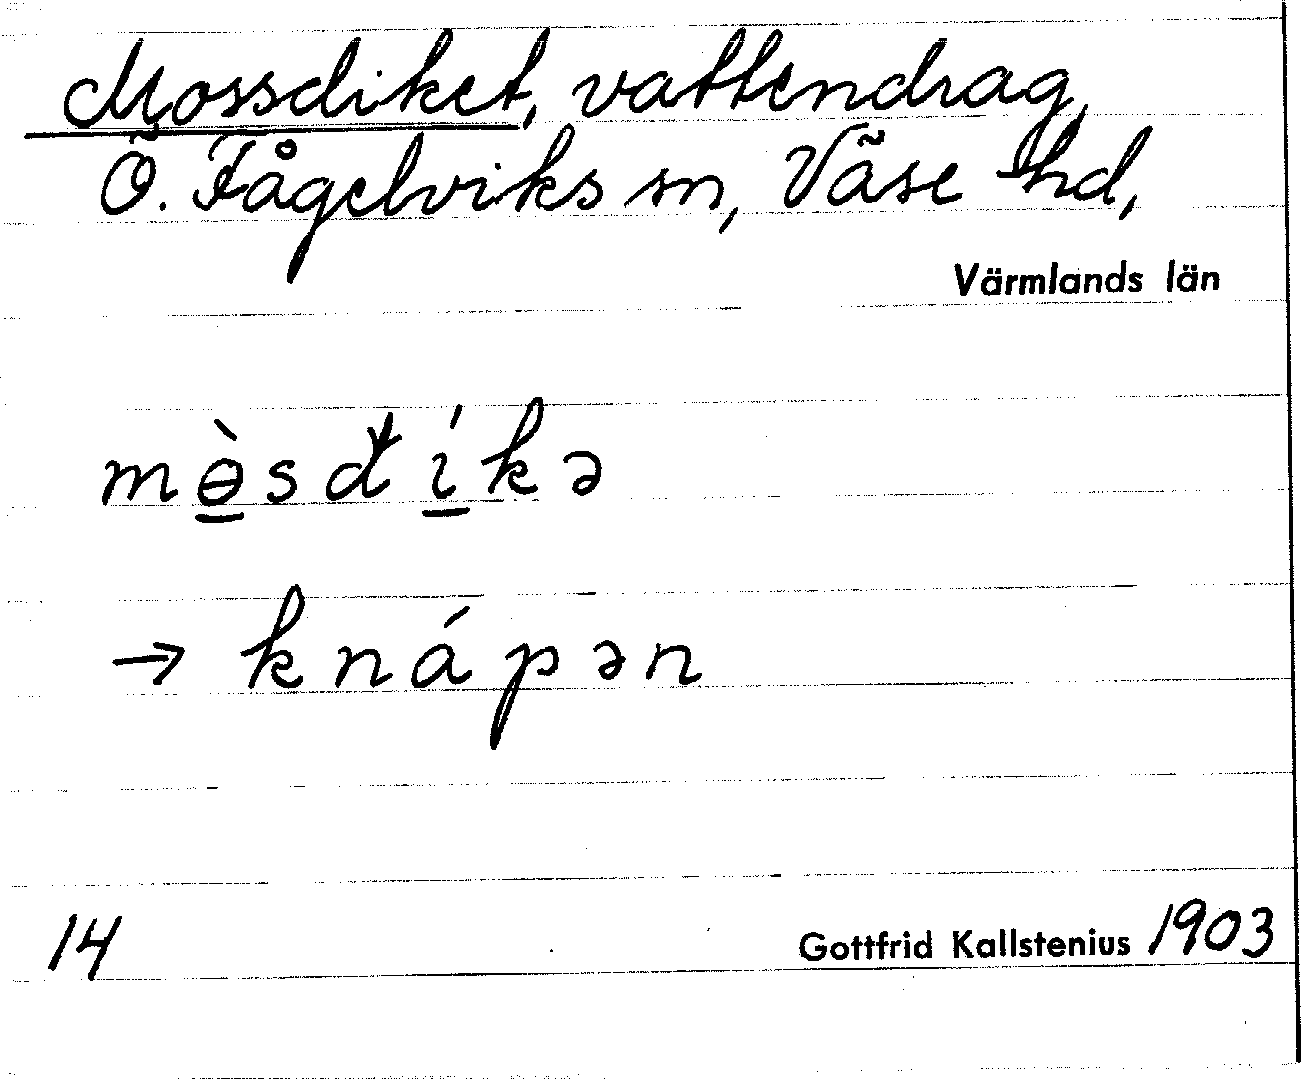 Mossdiket, vattendrag,
Ö. Fågelviks sn, Väse hd,
Värmlands län
mɵ̲̀sđí̲kə
→ knápən
14 Gottfrid Kallstenius 1903